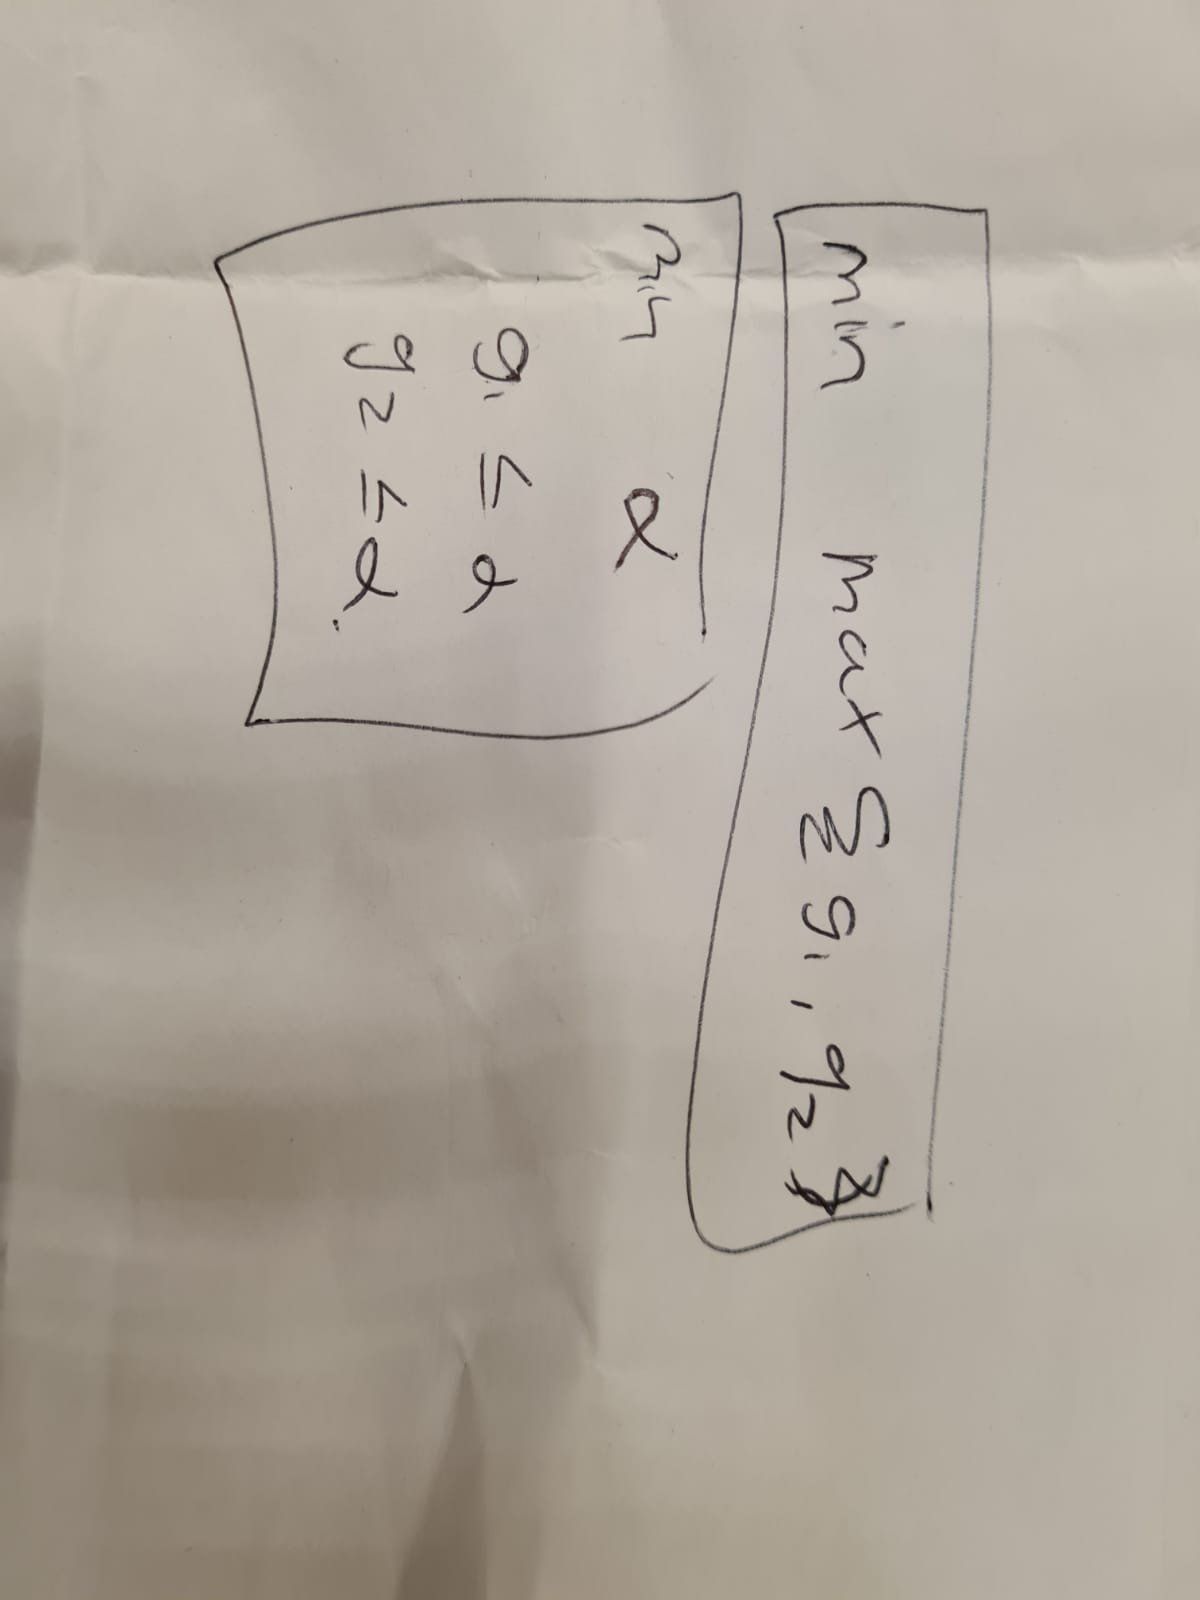 min max { g₁, g₂ }
min α
g₁ ≤ α
g₂ ≤ α.